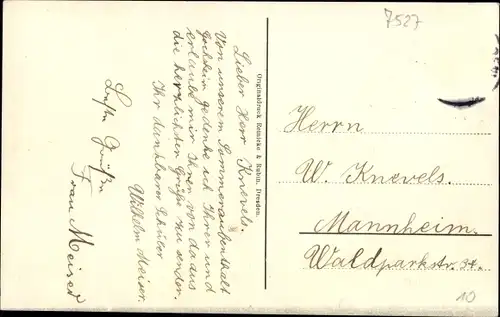 7527
Lieber Herr Knevels.
Von unserem Sommeraufenthalt
gedenke ich Ihrer und
erlaube mir Ihnen von da aus
die herzlichsten Grüße zu senden.
Ihr dankbarer Schüler
Wilhelm Meiser.
Beste Grüße
Frau Meiser
Originaldruck Reinicke & Rubin, Dresden.
Herrn
W. Knevels.
Mannheim.
Waldparkstr. 34.
10